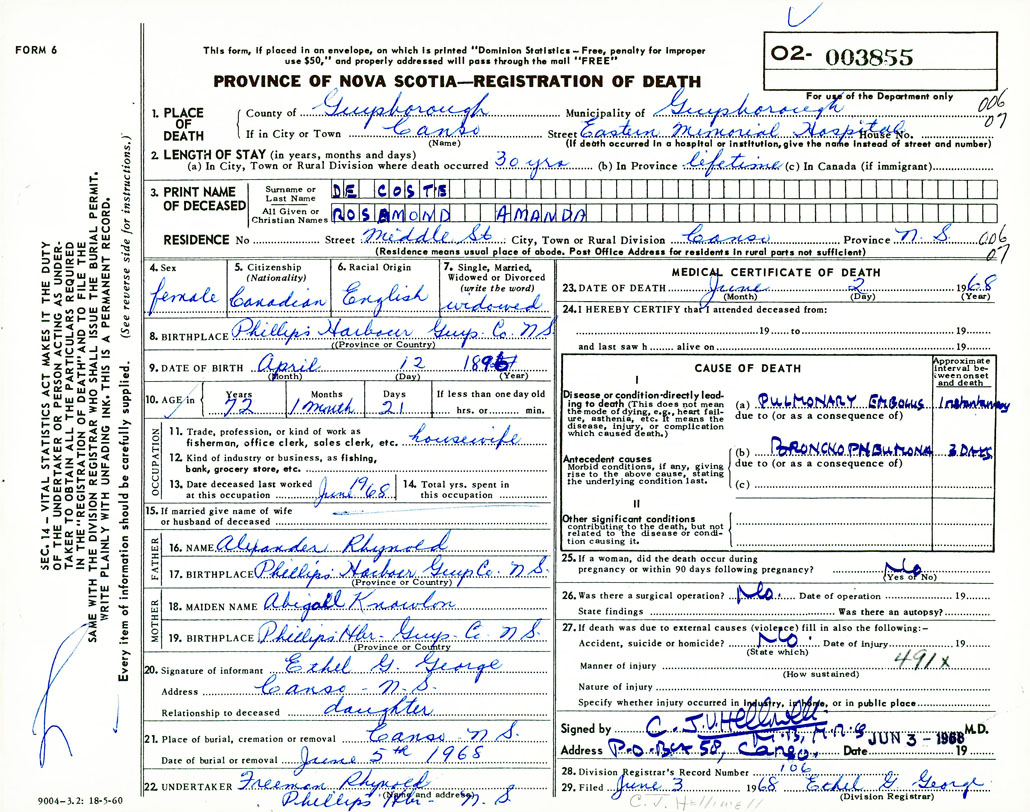 FORM 6
This form, if placed in an envelope, on which is printed "Dominion Statistics – Free, penalty for improper
use $50," and properly addressed will pass through the mail "FREE"
PROVINCE OF NOVA SCOTIA—REGISTRATION OF DEATH
02- 003855
For use of the Department only
006
07
1. PLACE OF DEATH County of Guysborough Municipality of Guysborough
If in City or Town Canso Street Eastern Memorial Hospital House No.
(Name) (If death occurred in a hospital or institution, give the name instead of street and number)
2. LENGTH OF STAY (in years, months and days)
(a) In City, Town or Rural Division where death occurred 30 yrs (b) In Province lifetime (c) In Canada (if immigrant)
3. PRINT NAME OF DECEASED
Surname or Last Name DE COSTE
All Given or Christian Names ROSAMOND AMANDA
RESIDENCE No Street Middle St City, Town or Rural Division Canso Province N. S.
006
07
(Residence means usual place of abode. Post Office Address for residents in rural parts not sufficient)
4. Sex
female
5. Citizenship
(Nationality)
Canadian
6. Racial Origin
English
7. Single, Married,
Widowed or Divorced
(write the word)
widowed
8. BIRTHPLACE Phillips Harbour Guys. Co. N S
(Province or Country)
9. DATE OF BIRTH April 12
(Month) (Day) (Year)
10. AGE in
Years Months Days If less than one day old
72 1 Month 21 hrs. or min.
OCCUPATION
11. Trade, profession, or kind of work as
fisherman, office clerk, sales clerk, etc. housewife
12. Kind of industry or business, as fishing,
bank, grocery store, etc.
13. Date deceased last worked
at this occupation June 1968
14. Total yrs. spent in
this occupation
15. If married give name of wife
or husband of deceased
FATHER
16. NAME Alexander Rhynold
17. BIRTHPLACE Phillips Harbour Guys Co. N. S.
(Province or Country)
MOTHER
18. MAIDEN NAME Abigail Knowlon
19. BIRTHPLACE Phillips Hbr - Guys. Co N. S.
(Province or Country)
20. Signature of informant Ethel G. George
Address Canso - N. S.
Relationship to deceased daughter
21. Place of burial, cremation or removal Canso N. S.
Date of burial or removal June 5th 1968
22. UNDERTAKER Freeman Rhynold
(Name and address)
Phillips Hbr - N. S.
MEDICAL CERTIFICATE OF DEATH
23. DATE OF DEATH June 2 1968
(Month) (Day) (Year)
24. I HEREBY CERTIFY that I attended deceased from:
19 to 19
and last saw h alive on 19
CAUSE OF DEATH
Approximate
interval be-
tween onset
and death
I
Disease or condition directly lead-
ing to death (This does not mean
the mode of dying, e.g., heart fail-
ure, asthenia, etc. It means the
disease, injury, or complication
which caused death.)
(a) PULMONARY EMBOLUS Instantaneously
due to (or as a consequence of)
Antecedent causes
Morbid conditions, if any, giving
rise to the above cause, stating
the underlying condition last.
(b) BRONCHOPNEUMONIA 3 DAYS
due to (or as a consequence of)
(c)
II
Other significant conditions
contributing to the death, but not
related to the disease or condi-
tion causing it.
25. If a woman, did the death occur during
pregnancy or within 90 days following pregnancy? No
(Yes or No)
26. Was there a surgical operation? No. Date of operation 19
State findings Was there an autopsy?
27. If death was due to external causes (violence) fill in also the following:–
Accident, suicide or homicide? No. Date of injury 19
(State which)
491x
Manner of injury
(How sustained)
Nature of injury
Specify whether injury occurred in industry, in home, or in public place
Signed by C. J. V. Helliwell M.D.
Address P.O. Box 58, Canso. Date JUN 3 - 1968 19
28. Division Registrar's Record Number 106
29. Filed June 3 1968 Ethel G George
(Division Registrar)
C. J. Helliwell
SEC. 14 – VITAL STATISTICS ACT MAKES IT THE DUTY
OF THE UNDERTAKER OR PERSON ACTING AS UNDER-
TAKER TO OBTAIN ALL THE PARTICULARS REQUIRED
IN THE "REGISTRATION OF DEATH" AND TO FILE THE
SAME WITH THE DIVISION REGISTRAR WHO SHALL ISSUE THE BURIAL PERMIT.
WRITE PLAINLY WITH UNFADING INK. THIS IS A PERMANENT RECORD.
Every item of information should be carefully supplied. (See reverse side for instructions.)
9004-3.2: 18-5-60